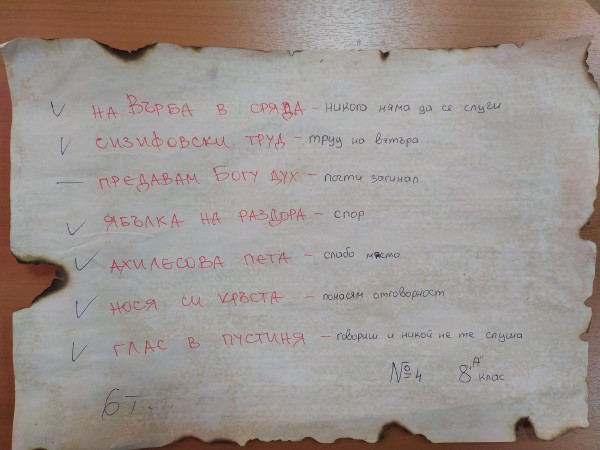 ✓ НА ВЪРБА В СРЯДА – никога няма да се случи
✓ СИЗИФОВСКИ ТРУД – труд на вятъра
— ПРЕДАВАМ БОГУ ДУХ – почти загинал
✓ ЯБЪЛКА НА РАЗДОРА – спор
✓ АХИЛЕСОВА ПЕТА – слабо място
✓ НОСЯ СИ КРЪСТА – понасям отговорност
✓ ГЛАС В ПУСТИНЯ – говориш и никой не те слуша
№4 8 "А" клас
6 т.